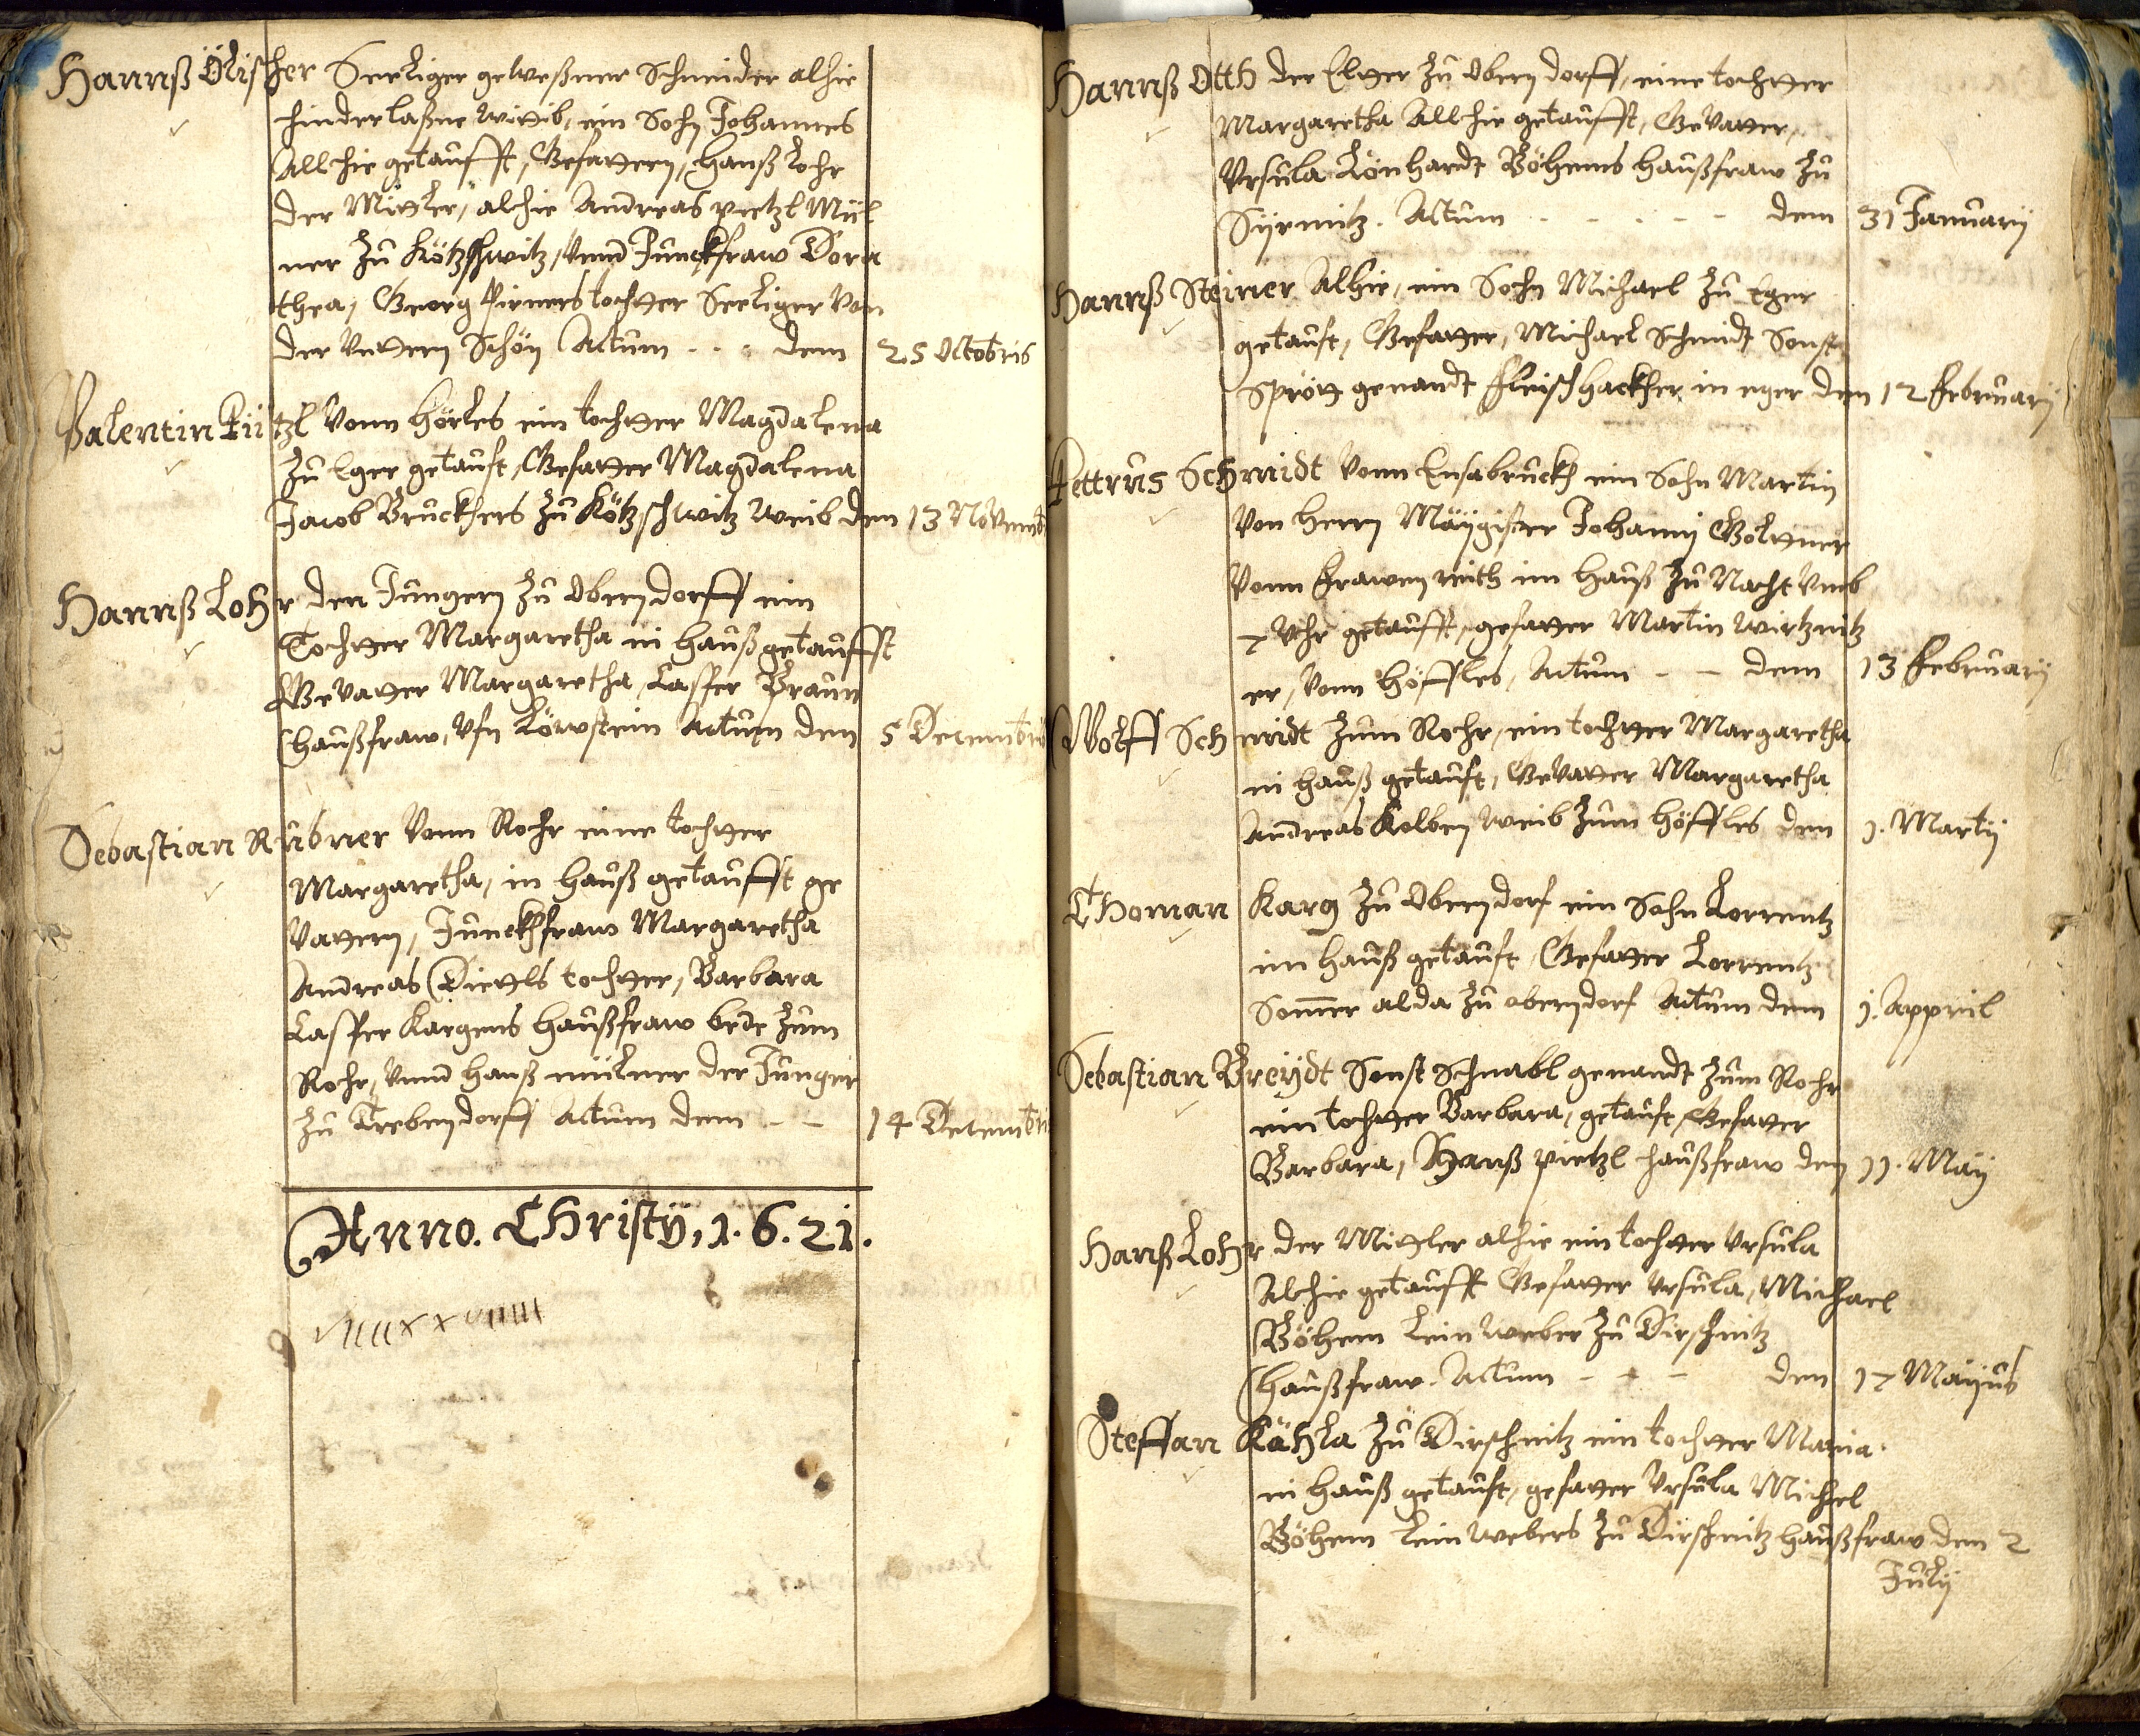 Hannß Ölischer Seeliger geweßener Schneider alhie
hinderlaßne wittib, ein Sohn Johannes
Allhie getaufft, Gefattern, Hanß Lohr
der Mittler, alhie Andreas pietzl Mül
ner Zu Kötzschwitz, vnnd Junckfraw Dora
thea, Georg Pirners tochtter Seeliger Von
der Schön Actum - - - dem 25 Octobris
Valentin Pütz̈l Vonn Hörles ein tochtter Magdalena
Zu Eger getauft, Gefatter Magdalena
Jacob Bruckhers Zu Kötzschwitz Weib den 13 Novemb
Hannß Lohr den Jungern Zu Oberndorff ein
Tochtter Margaretha in Hauß getaufft
Gevatter Margaretha, Casper Braun
Haußfraw, Actum den 5 Decembris
Sebastian Rubner Vonn Rohr eine tochtter
Margaretha, in Hauß getaufft ge
Vattern, Junckhfraw Margaretha
Andreas Diettls tochtter, Barbara
Casper Kargens Haußfraw bede Zum
Rohr, Vnnd Hanß müllner der Junger
Zu Trebendorff Actum dem - - 14 Decembri
Anno. Christÿ, 1. 6. 21.
Hannß Otth der Eltter Zu Oberndorff, eine tochtter
Margaretha Allhie getaufft, Gevatter,
Vrsula Lönhardt Böhems Haußfraw Zu
Sÿrmitz. Actum - - - - - dem 31 Januarÿ
Hannß Steiner Alhie, ein Sohn Michael Zu Eger
getauft, Gefatter, Michael Schmidt Sonst
Sprött genandt fleischhackher in eger den 12 februarÿ
Pettrus Schmidt Vonn Ensabruckh ein Sohn Martin
Von Herrn Maÿgister Johannj Goltner
Vonn frawenreith im Hauß Zu Nacht Vmb
7 Vhr getaufft, gefatter Martin Wirtznitz
er, Vonn Höffles, Actum - - dem 13 februarÿ
Wolff Schmidt Zum Rohr, ein tochtter Margaretha
in Hauß getauft, Gevatter Margaretha
Andreas Kolben Weib Zum Höffles dem 1. Martÿ
Thoman Karg Zu Oberndorf ein Sohn Lorrentz
im Hauß getauft, Gefatter Lorrentz
Som̃er alda Zu oberndorf Actum dem 1. Appril
Sebastian Breÿdt Sonst Schnabl genandt Zum Rohr
ein tochtter Barbara, getauft, Gefatter
Barbara, Hanß pietzl Haußfraw den 11. Maÿ
Hanß Lohr der Mittler alhie ein tochtter Vrsula
Alhie getaufft Gefatter Vrsula, Michael
Böhem Leinweber Zu Dirschnitz
Haußfraw. Actum - - - den 17 Maÿus
Steffan Kähla Zu Dirschnitz ein tochtter Maria.
in Hauß getauft, gefatter Vrsula Michel
Böhem Leinwebers Zu Dirschnitz Haußfraw dem 2
Julÿ